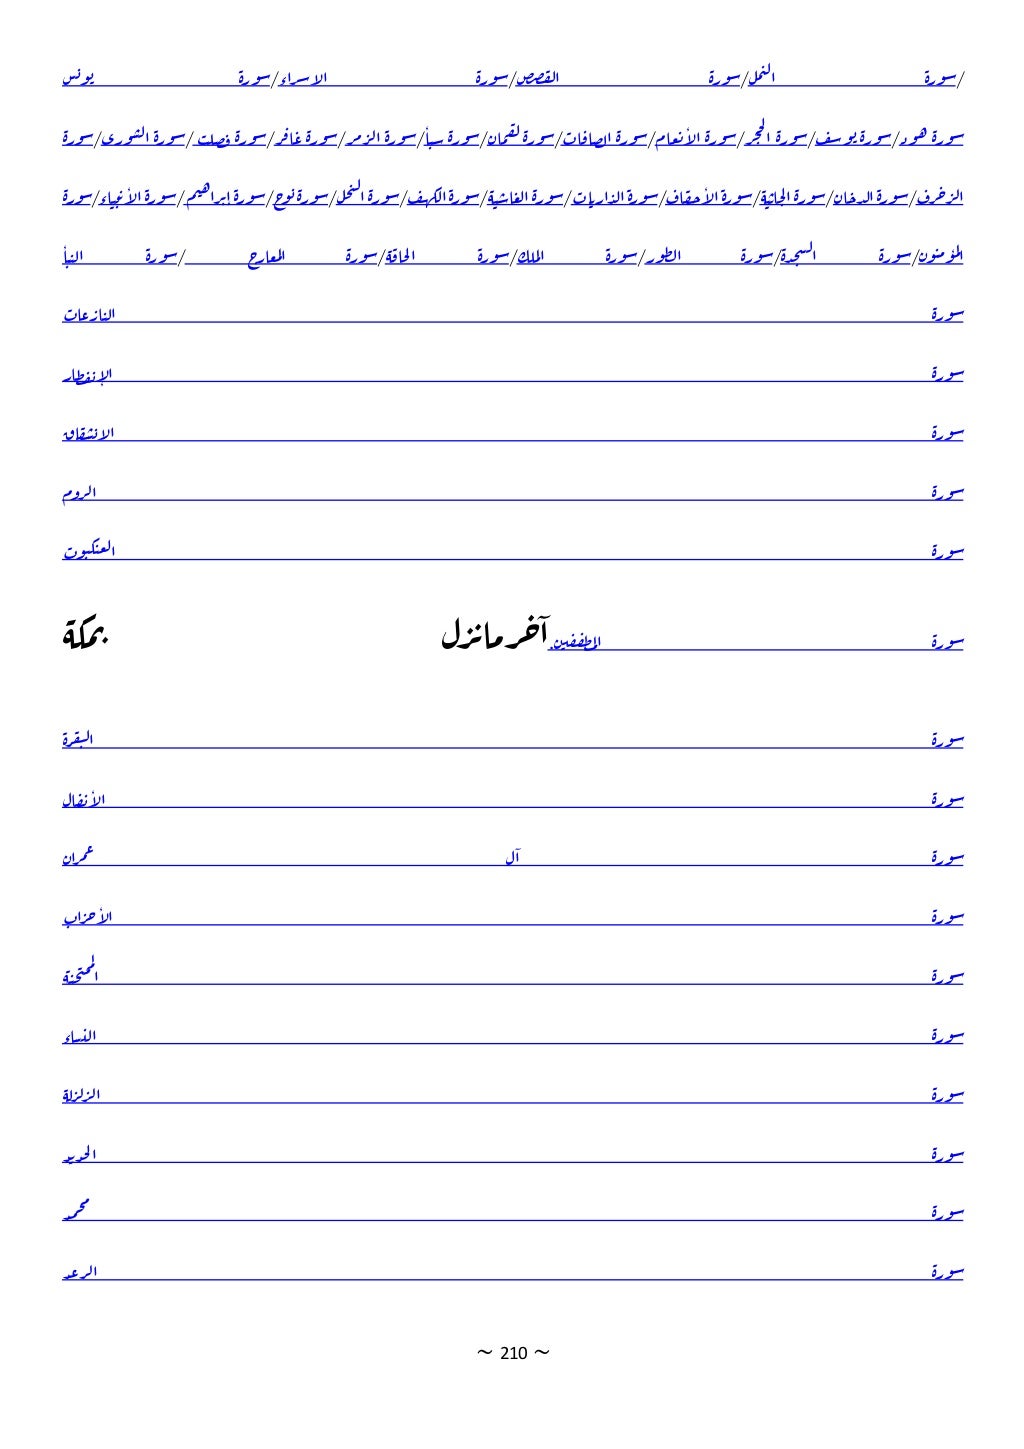 /سورة النمل/سورة القصص/سورة الاسراء/سورة يونس
سورة هود/سورة يوسف/سورة الحجر/سورة الأنعام/سورة الصافات/سورة لقمان/سورة سبأ/سورة الزمر/سورة غافر/سورة فصلت/سورة الشورى/سورة
الزخرف/سورة الدخان/سورة الجاثية/سورة الأحقاف/سورة الذاريات/سورة الغاشية/سورة الكهف/سورة النحل/سورة نوح/سورة إبراهيم/سورة الأنبياء/سورة
المؤمنون/سورة السجدة/سورة الطور/سورة الملك/سورة الحاقة/سورة المعارج /سورة النبأ
سورة النازعات
سورة الإنفطار
سورة الانشقاق
سورة الروم
سورة العنكبوت
سورة المطففين. آخر مانزل بمكة
سورة البقرة
سورة الأنفال
سورة آل عمران
سورة الأحزاب
سورة الممتحنة
سورة النساء
سورة الزلزلة
سورة الحديد
سورة محمد
سورة الرعد
~ 210 ~